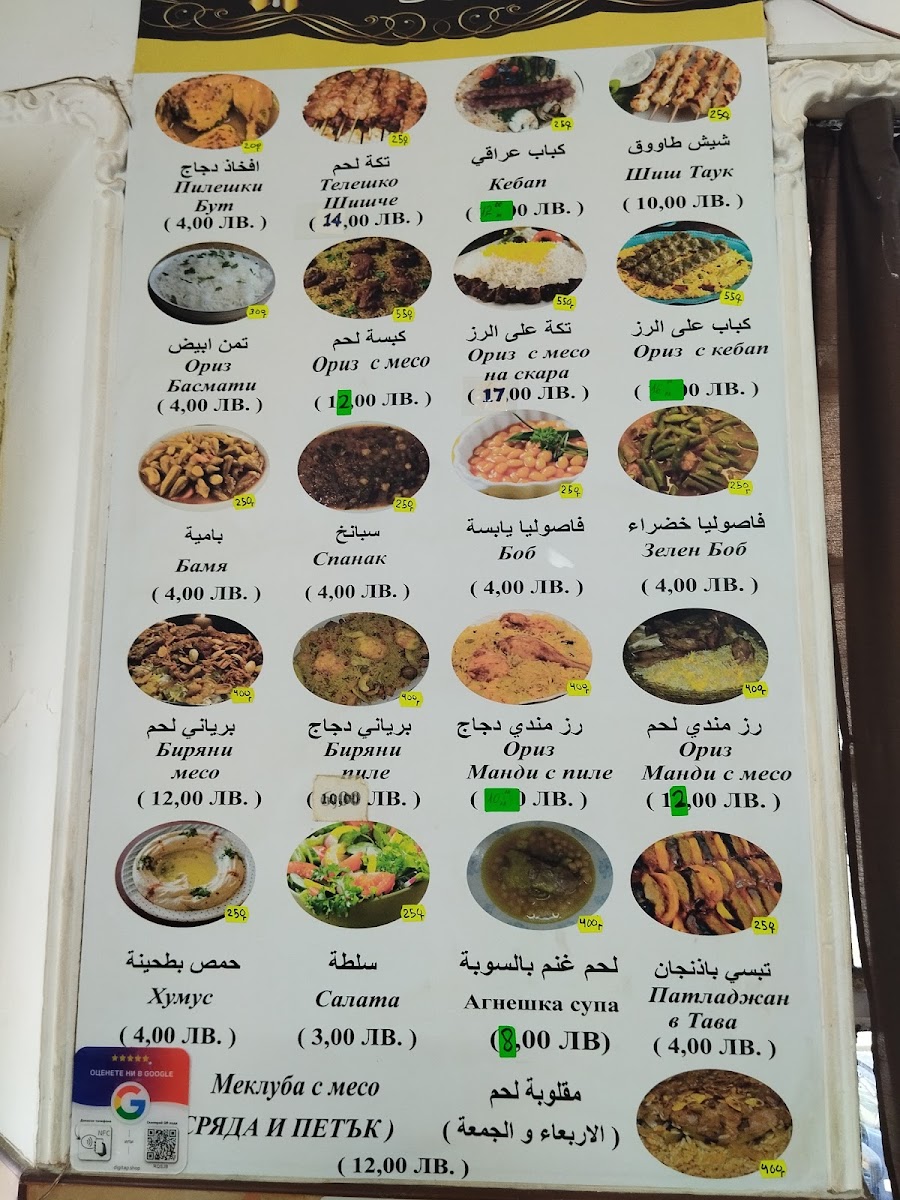 20г
25г
25г
25г
افخاذ دجاج
Пилешки
Бут
( 4,00 ЛВ. )
تكة لحم
Телешко
Шишче
( 14,00 ЛВ. )
كباب عراقي
Кебап
0 ЛВ. )
شيش طاووق
Шиш Таук
( 10,00 ЛВ. )
30г
55г
550г
55г
تمن ابيض
Ориз
Басмати
( 4,00 ЛВ. )
كبسة لحم
Ориз с месо
( 12,00 ЛВ. )
تكة على الرز
Ориз с месо
на скара
( 17,00 ЛВ. )
كباب على الرز
Ориз с кебап
00 ЛВ. )
250г
250г
250г
250г
بامية
Бамя
( 4,00 ЛВ. )
سبانخ
Спанак
( 4,00 ЛВ. )
فاصوليا يابسة
Боб
( 4,00 ЛВ. )
فاصوليا خضراء
Зелен Боб
( 4,00 ЛВ. )
400г
400г
400г
400г
برياني لحم
Биряни
месо
( 12,00 ЛВ. )
برياني دجاج
Биряни
пиле
( 10,00 ЛВ. )
رز مندي دجاج
Ориз
Манди с пиле
( 10,00 ЛВ. )
رز مندي لحم
Ориз
Манди с месо
( 12,00 ЛВ. )
25г
25г
400г
25г
حمص بطحينة
Хумус
( 4,00 ЛВ. )
سلطة
Салата
( 3,00 ЛВ. )
لحم غنم بالسوبة
Агнешка супа
(8,00 ЛВ)
تبسي باذنجان
Патладжан
в Тава
( 4,00 ЛВ. )
Меклуба с месо
مقلوبة لحم
СРЯДА И ПЕТЪК )
( الاربعاء و الجمعة )
( 12,00 ЛВ. )
400г
ОЦЕНЕТЕ НИ В GOOGLE
G
NFC
или
digitap.shop